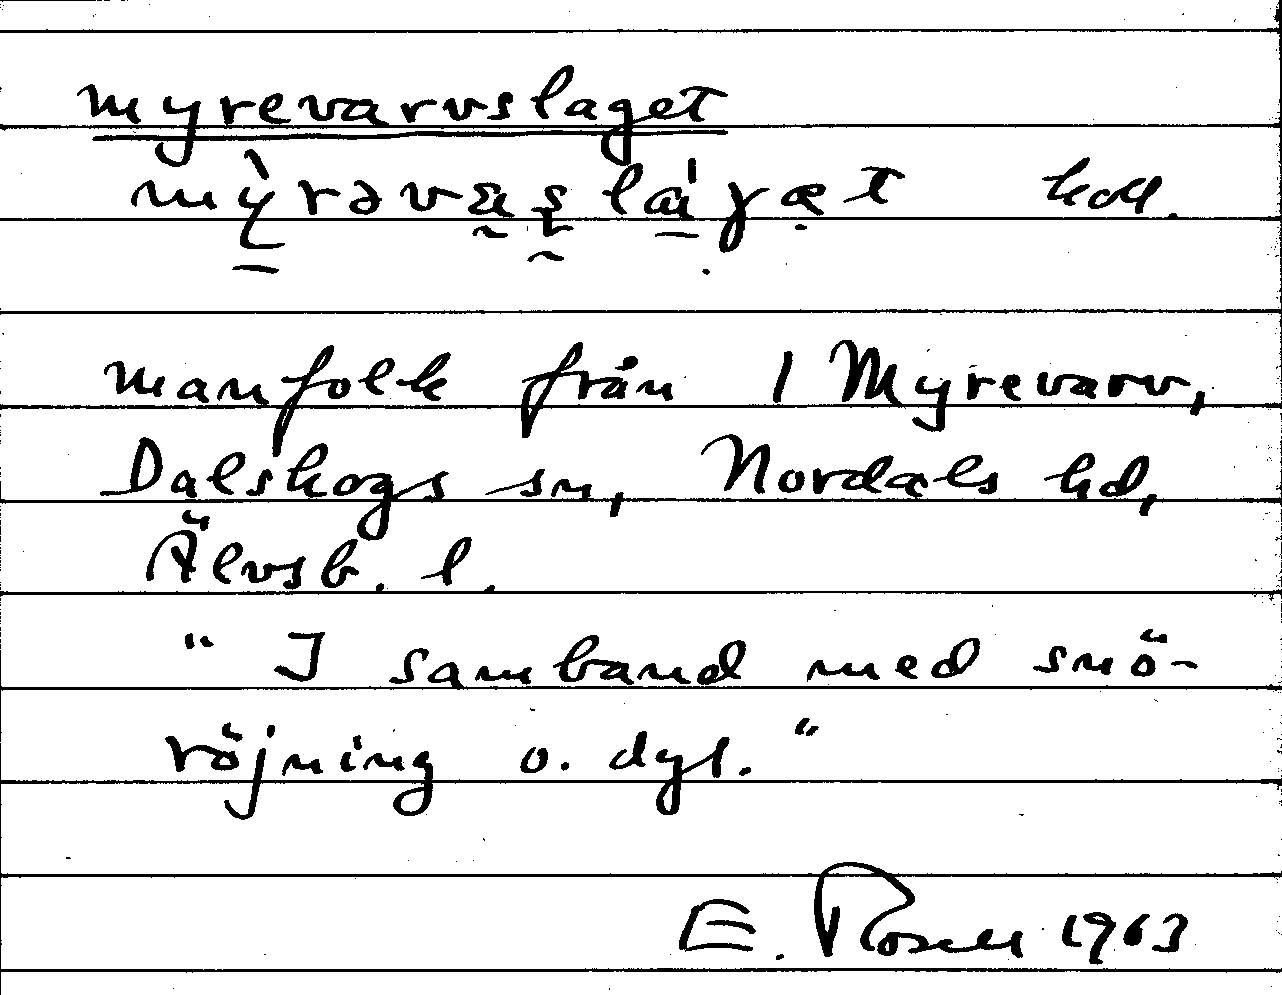 myrevarvslaget
koll.
manfolk från 1 Myrevarv,
Dalskogs sn, Nordals hd,
Älvsb. l.
" I samband med snö-
röjning o. dyl. "
E. Rosell 1963